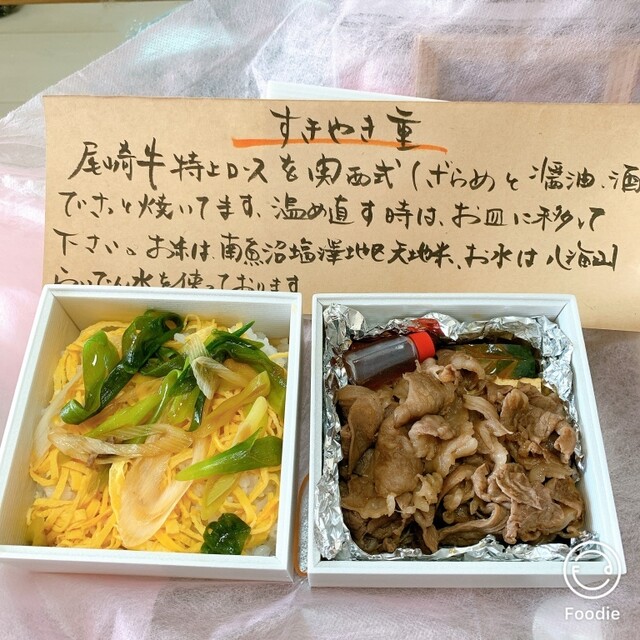 すきやき重
尾崎牛特上ロースを関西式(ざらめと醤油、酒
でさっと焼いてます、温め直す時は、お皿に移して
下さい。お米は、南魚沼塩澤地区天地米、お水は八海山
らいでん水を使っております
Foodie